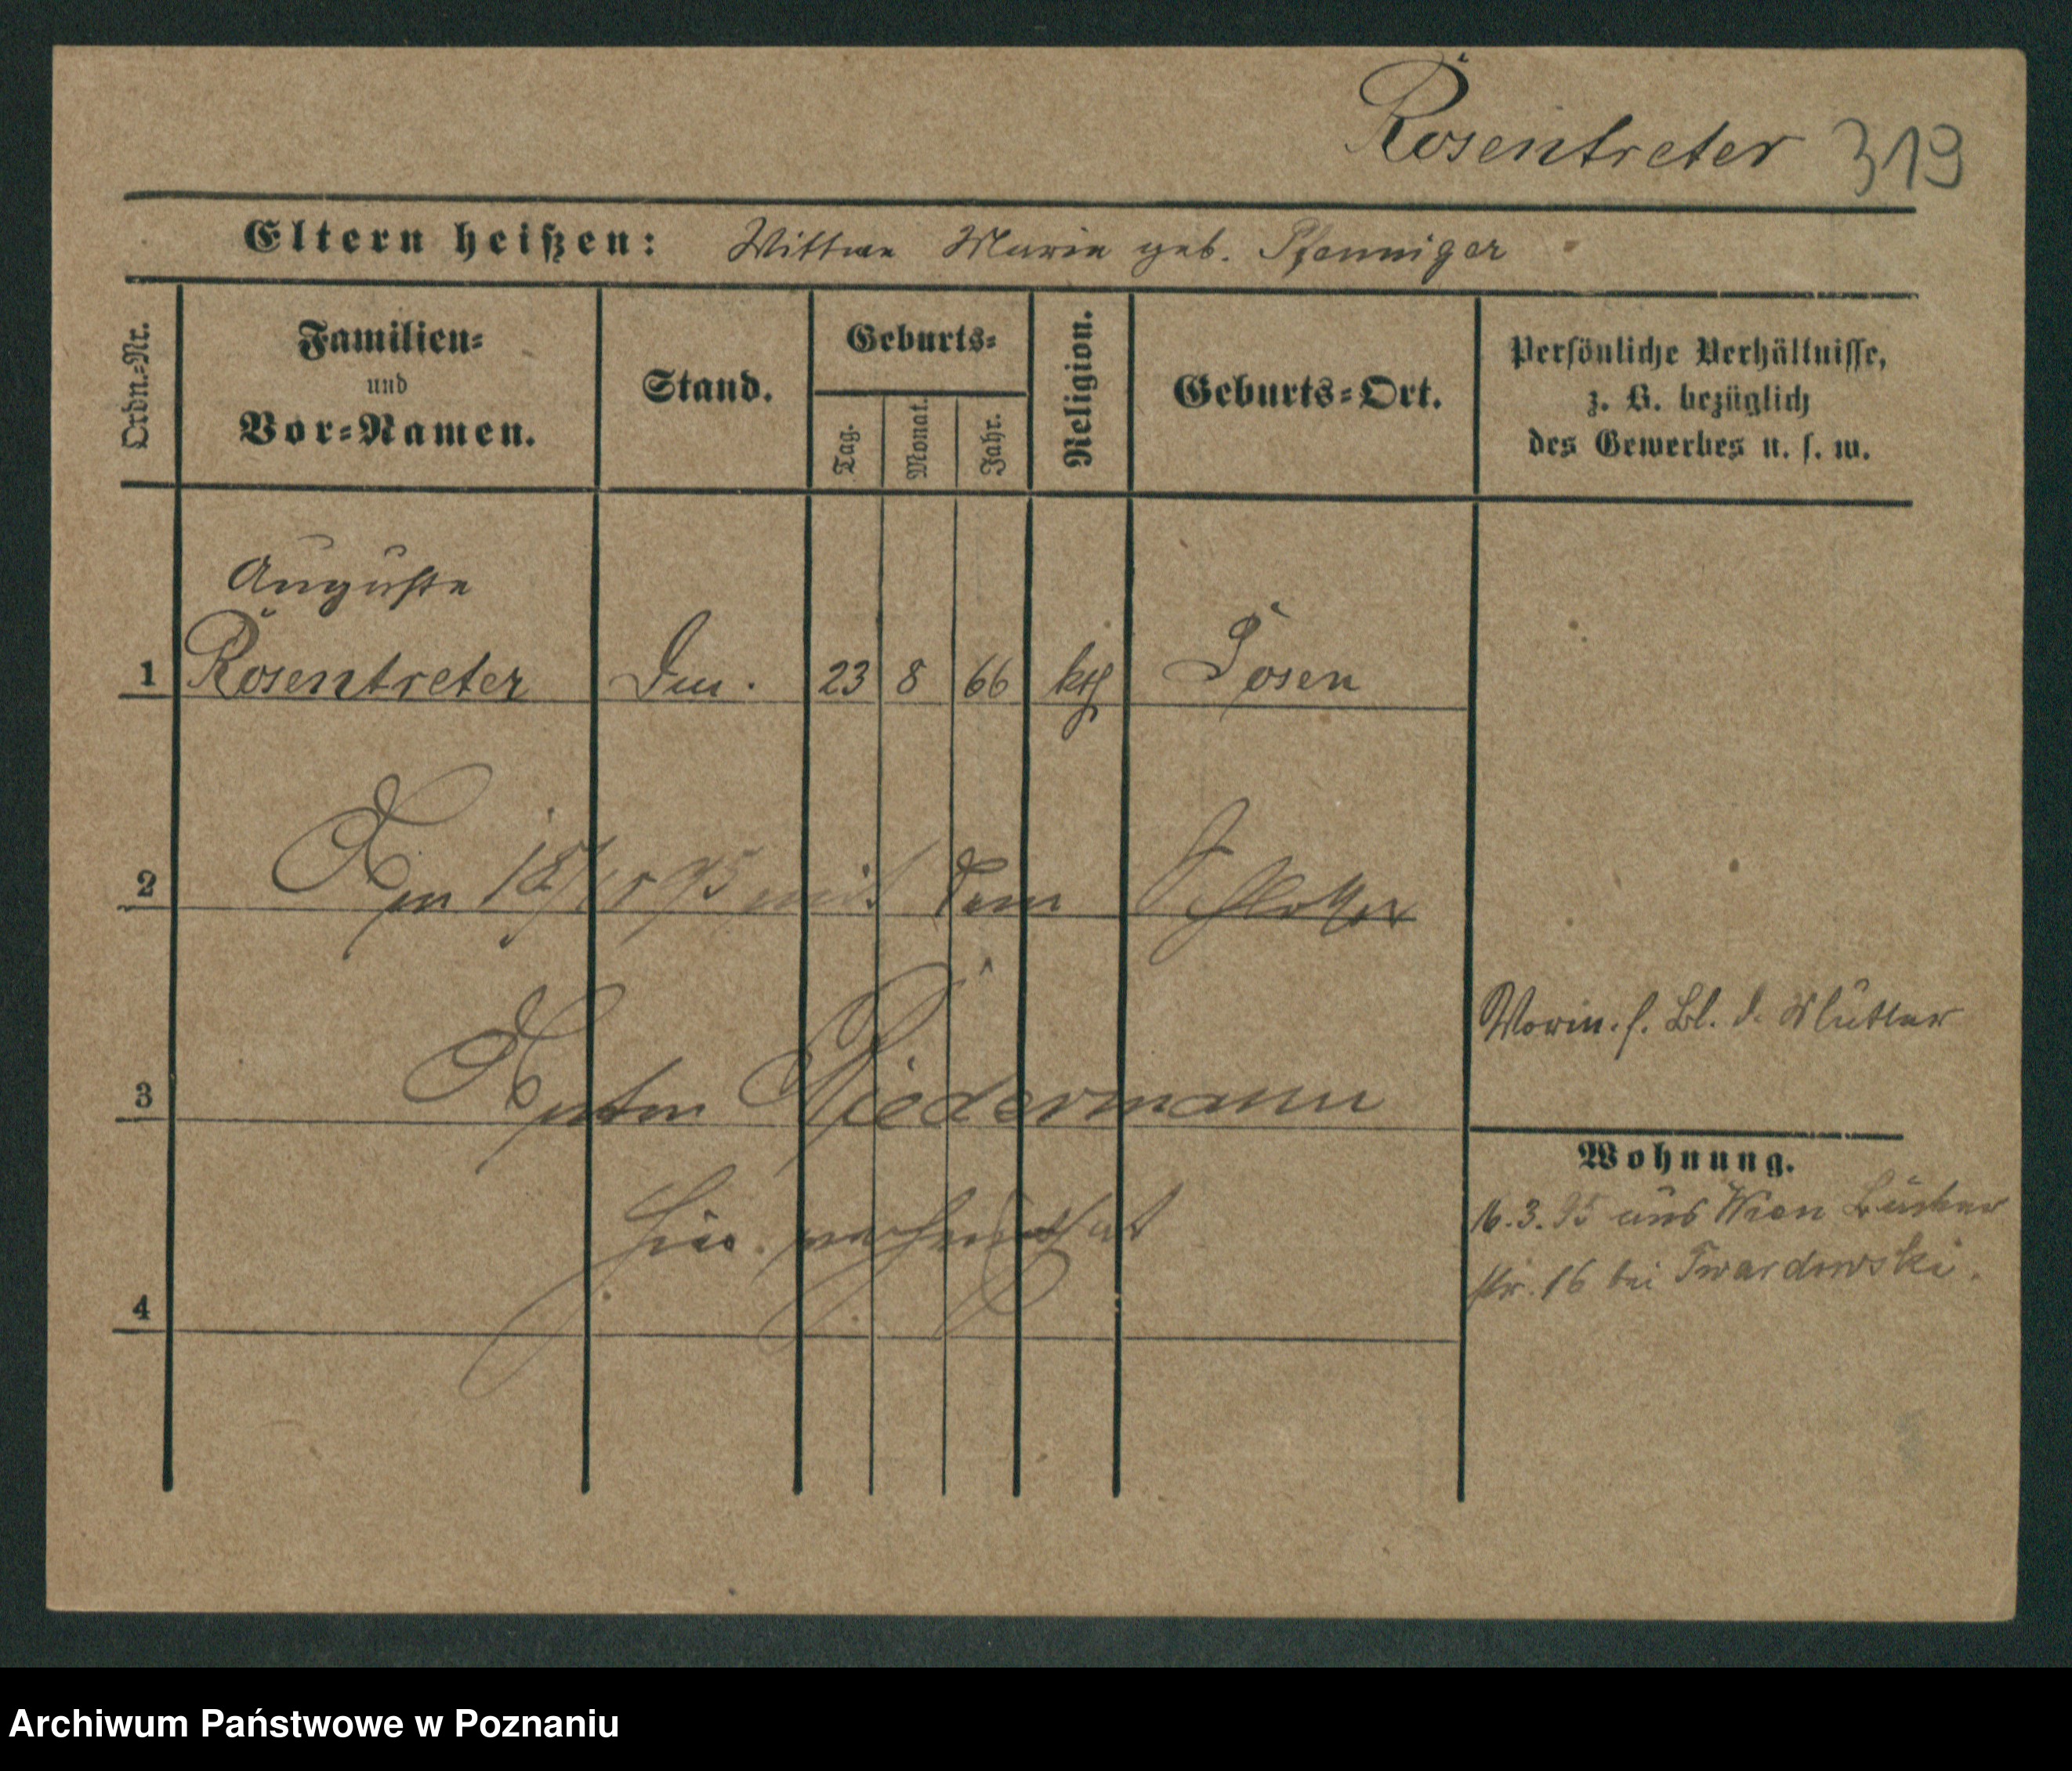 Rosentreter 319
Eltern heißen: Wittwe Maria geb. Pfenniger
Ordn.-Nr.
Familien-
und
Vor-Namen.
Stand.
Geburts-
Tag.
Monat.
Jahr.
Religion.
Geburts-Ort.
Persönliche Verhältnisse,
z. B. bezüglich
des Gewerbes u. s. w.
Auguste
1 Rosentreter 23 8 66 kth Posen
2 Am 95 mit dem
3 Anton Niedermann
hier verheirathet
4
Vorm. s. Bl. d. Mutter
Wohnung.
16.3.95 aus Wien Bäcker
str. 16 bei Twardowski.
Archiwum Państwowe w Poznaniu